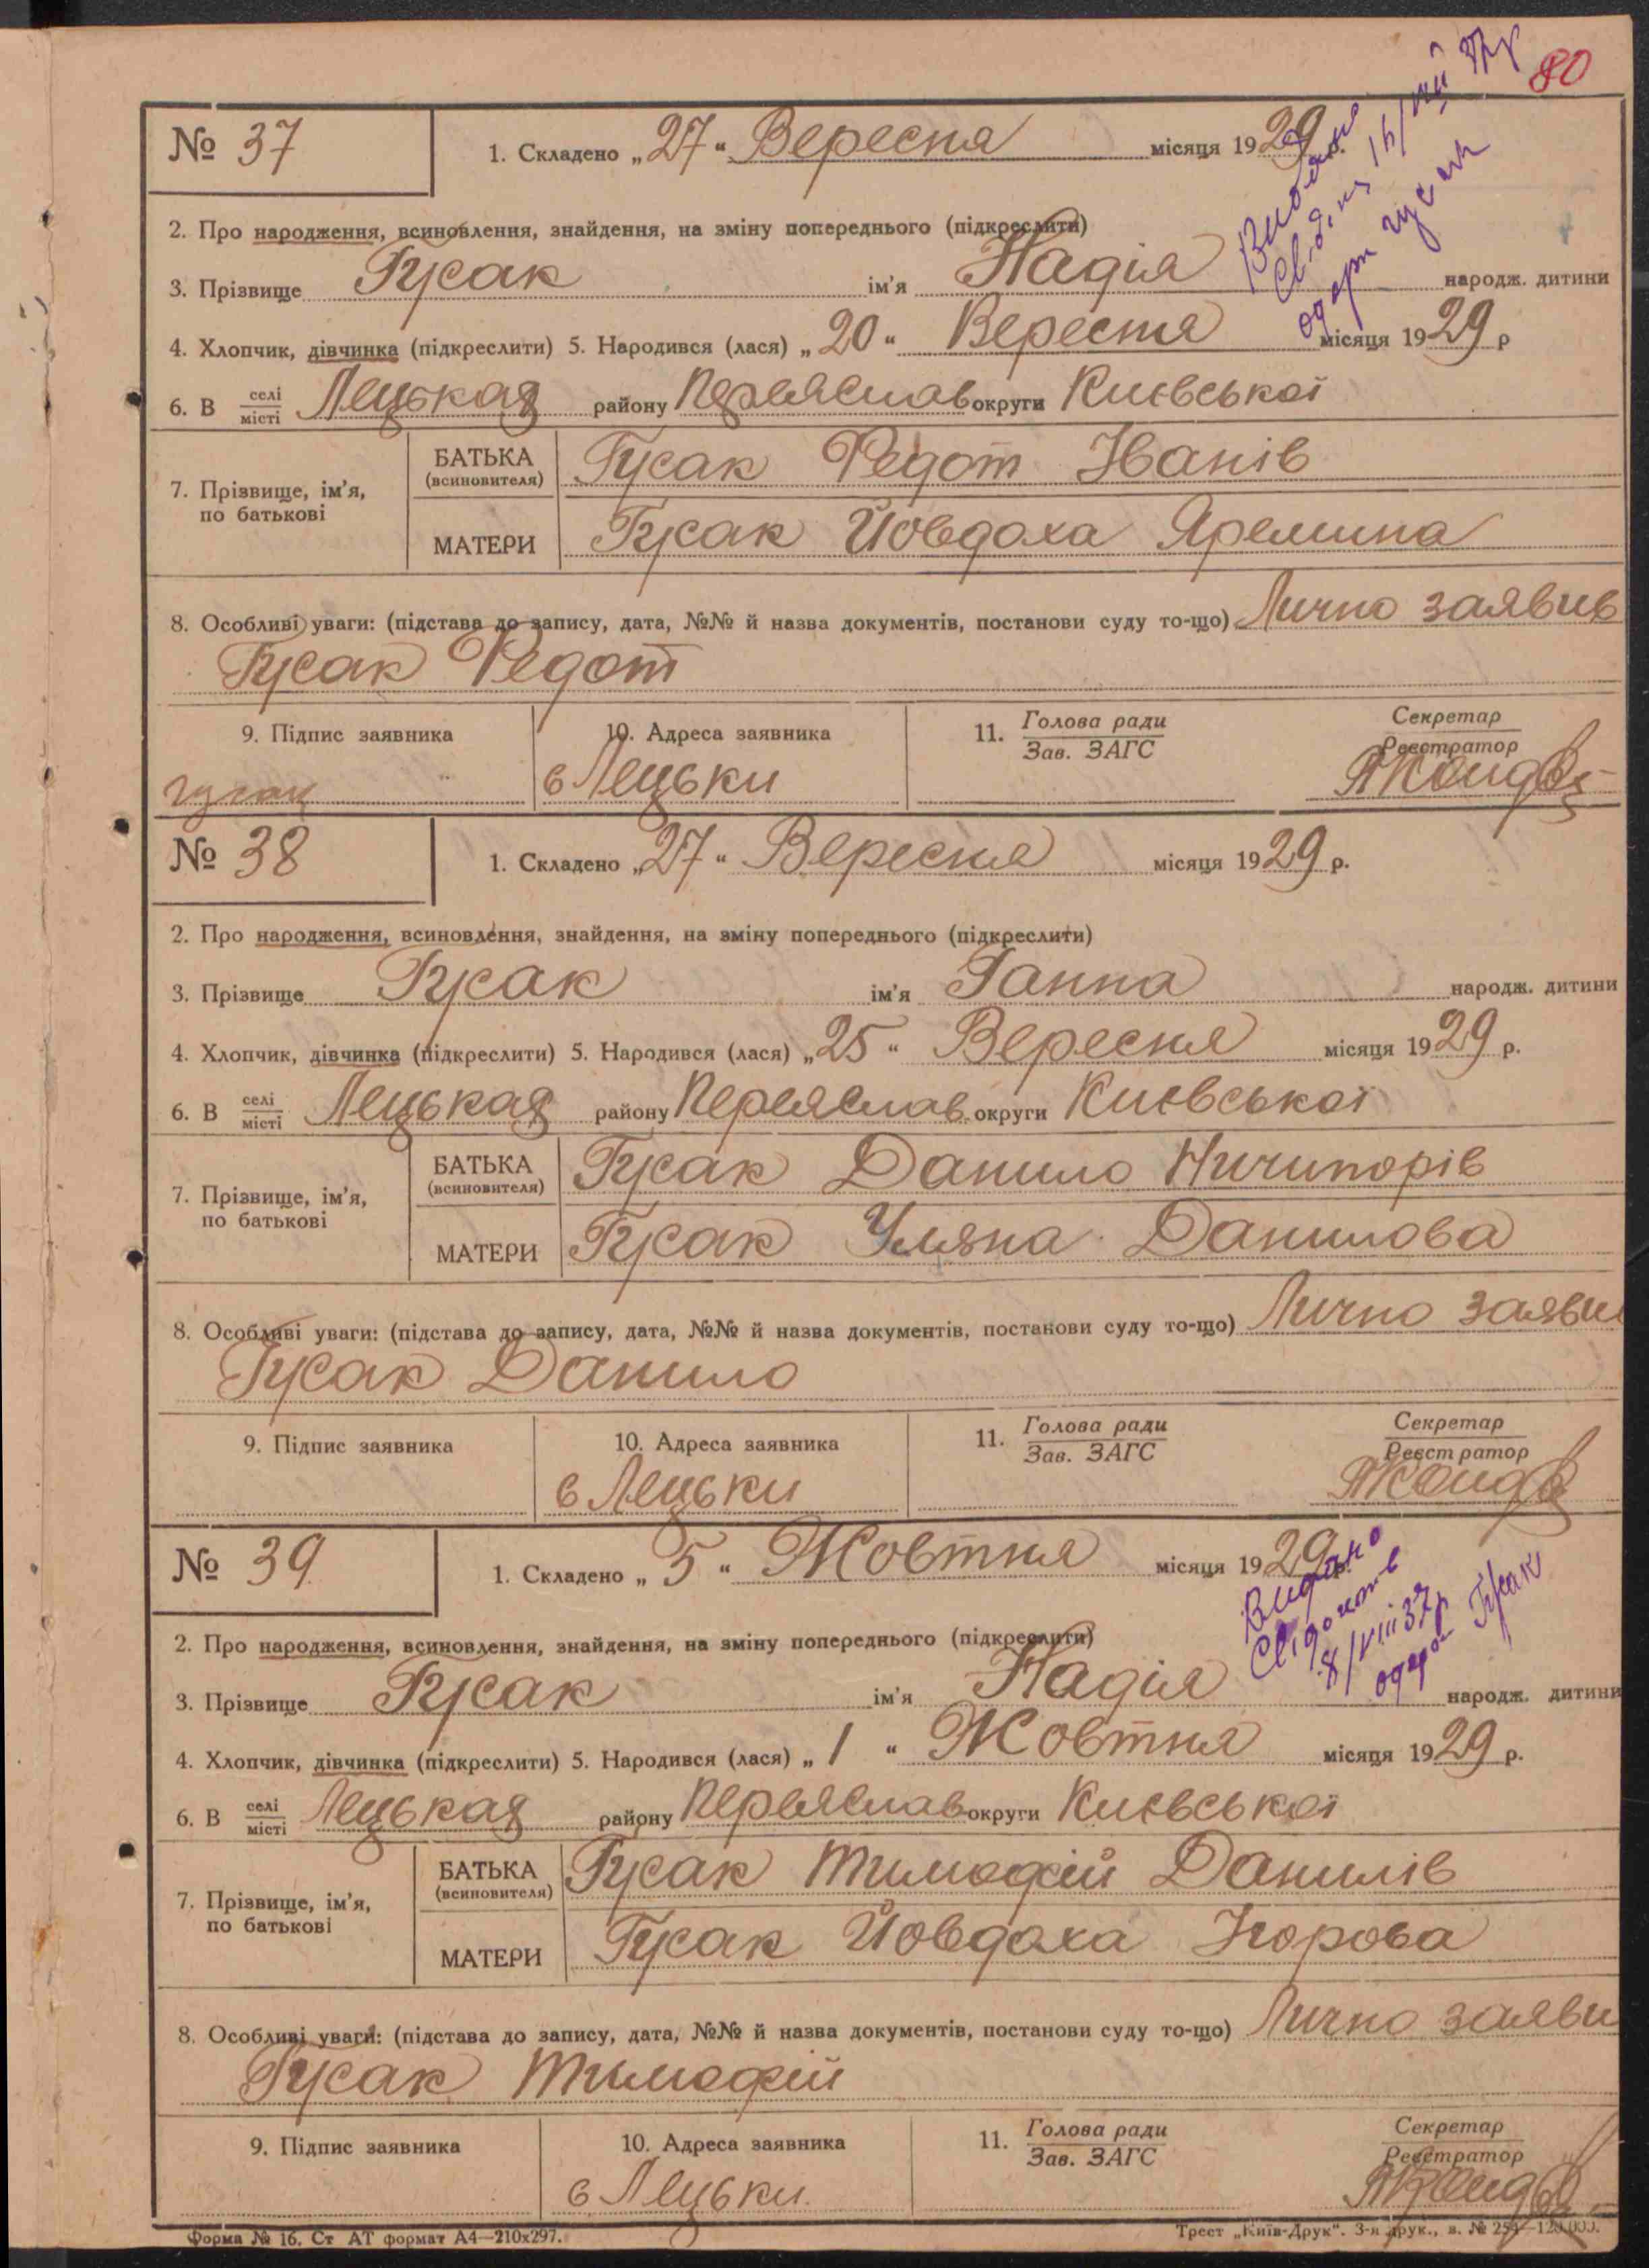 80
№ 37
1. Складено „27“ Вересня місяця 1929 р.
Видано
2. Про народження, всиновлення, знайдення, на зміну попереднього (підкреслити)
3. Прізвище Гусак ім'я Надія народж. дитини
4. Хлопчик, дівчинка (підкреслити) 5. Народився (лася) „20“ Вересня місяця 1929 р
6. В селі/місті Лецьках району Переяслав округи Київської
7. Прізвище, ім'я, по батькові
БАТЬКА (всиновителя) Гусак Федот Іванів
МАТЕРИ Гусак Йовдоха Яремина
8. Особливі уваги: (підстава до запису, дата, №№ й назва документів, постанови суду то-що) Лично заявив
Гусак Федот
9. Підпис заявника
10. Адреса заявника
11. Голова ради
Зав. ЗАГС
Секретар
Реєстратор
гусак
с Лецьки
№ 38
1. Складено „27“ Вересня місяця 1929 р.
2. Про народження, всиновлення, знайдення, на зміну попереднього (підкреслити)
3. Прізвище Гусак ім'я Ганна народж. дитини
4. Хлопчик, дівчинка (підкреслити) 5. Народився (лася) „25“ Вересня місяця 1929 р.
6. В селі/місті Лецьках району Переяслав округи Київської
7. Прізвище, ім'я, по батькові
БАТЬКА (всиновителя) Гусак Данило Ничипорів
МАТЕРИ Гусак Уляна Данилова
8. Особливі уваги: (підстава до запису, дата, №№ й назва документів, постанови суду то-що) Лично заяви
Гусак Данило
9. Підпис заявника
10. Адреса заявника
11. Голова ради
Зав. ЗАГС
Секретар
Реєстратор
с Лецьки
№ 39
1. Складено „5“ Жовтня місяця 1929 р.
Видано
8/VIII 37р
Гусак
2. Про народження, всиновлення, знайдення, на зміну попереднього (підкреслити)
3. Прізвище Гусак ім'я Надія народж. дитини
4. Хлопчик, дівчинка (підкреслити) 5. Народився (лася) „1“ Жовтня місяця 1929 р.
6. В селі/місті Лецьках району Переяслав округи Київської
7. Прізвище, ім'я, по батькові
БАТЬКА (всиновителя) Гусак Тимофій Данилів
МАТЕРИ Гусак Йовдоха Ігорова
8. Особливі уваги: (підстава до запису, дата, №№ й назва документів, постанови суду то-що) Лично заяви
Гусак Тимофій
9. Підпис заявника
10. Адреса заявника
11. Голова ради
Зав. ЗАГС
Секретар
Реєстратор
с Лецьки
Форма № 16. Ст АТ формат А4—210х297.
Трест „Київ-Друк“. 3-я друк., в. № 254—120.000.